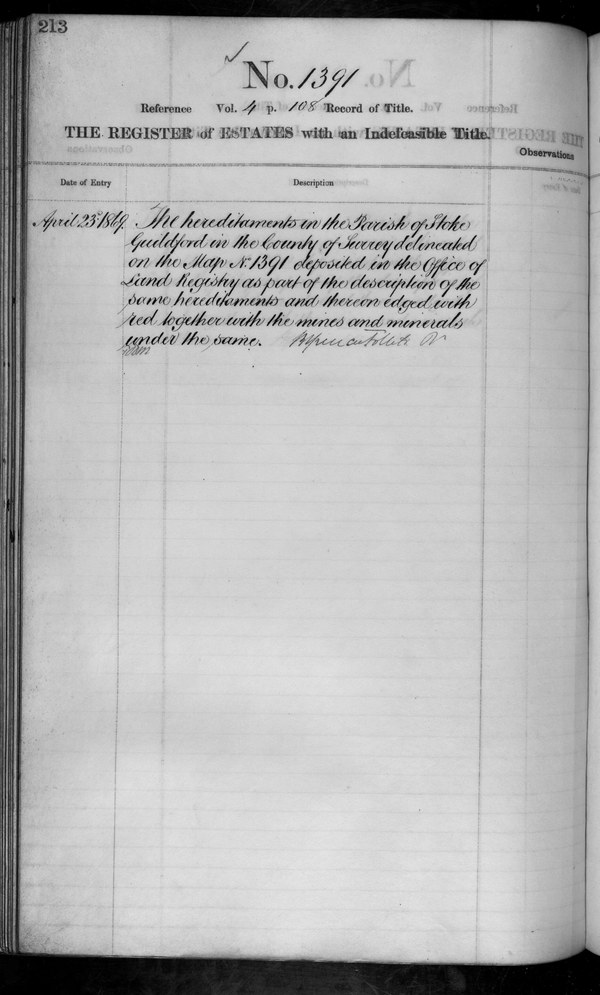 213
No. 1391
Reference Vol. 4 p. 108 Record of Title.
THE REGISTER of ESTATES with an Indefeasible Title.
Observations
Date of Entry
Description
April 23rd 1869. The hereditaments in the Parish of Stoke
Guildford in the County of Surrey delineated
on the Map No. 1391 deposited in the Office of
Land Registry as part of the description of the
same hereditaments and thereon edged with
red together with the mines and minerals
under the same.